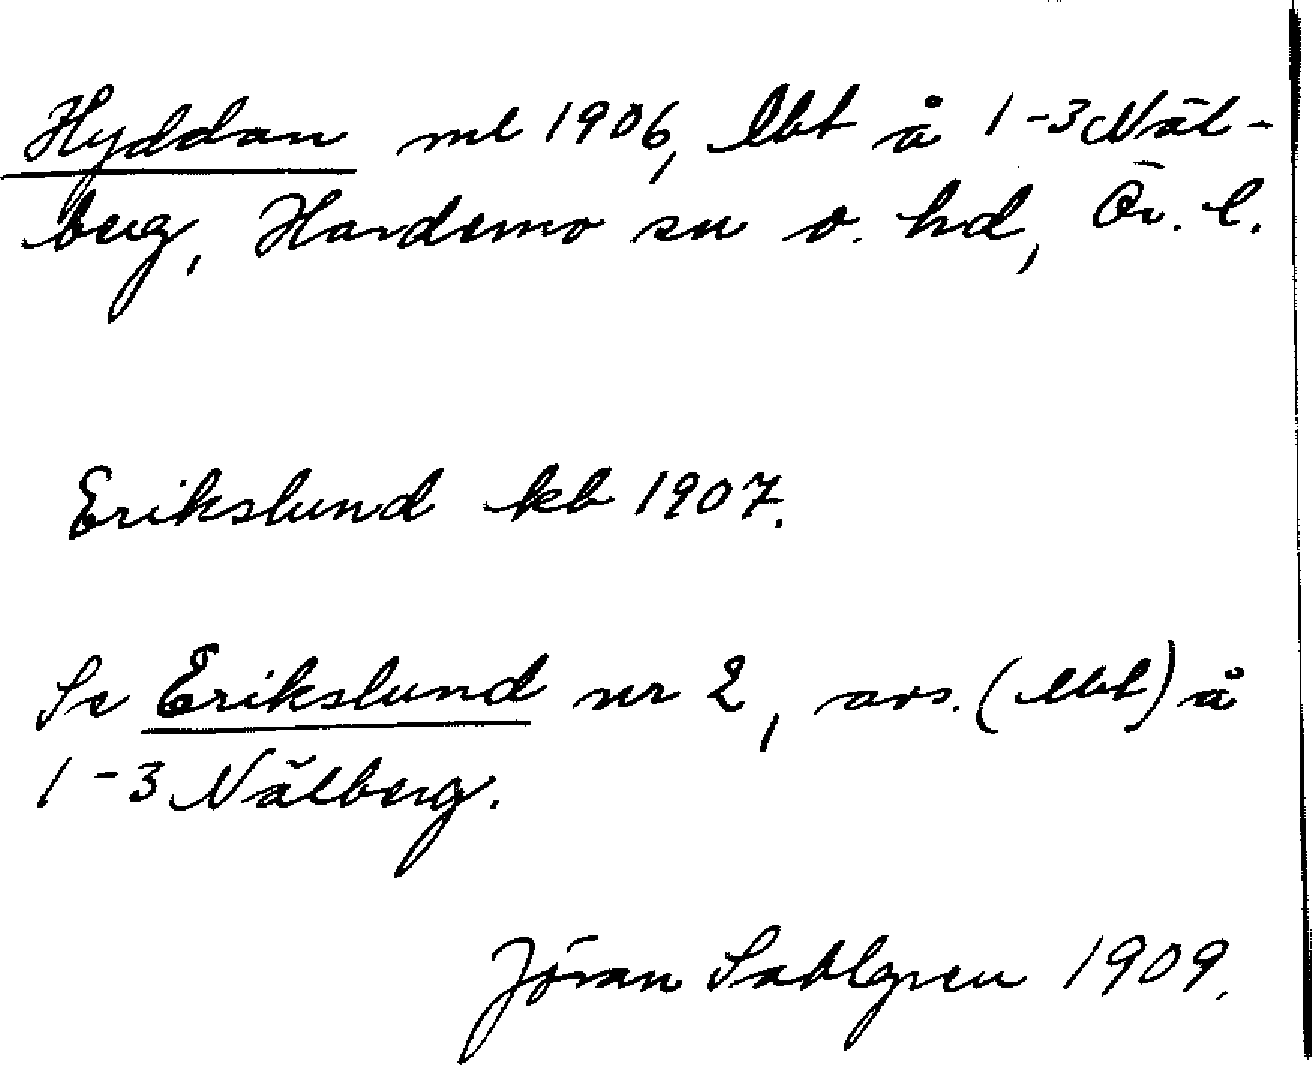 Hyddan ml 1906, lbt å 1-3 Näl-
berg, Hardemo sn o. hd, Ör. l.
Erikslund kb 1907.
Se Erikslund nr 2, avs. (lbt) å
1-3 Nälberg.
Jöran Sahlgren 1909.